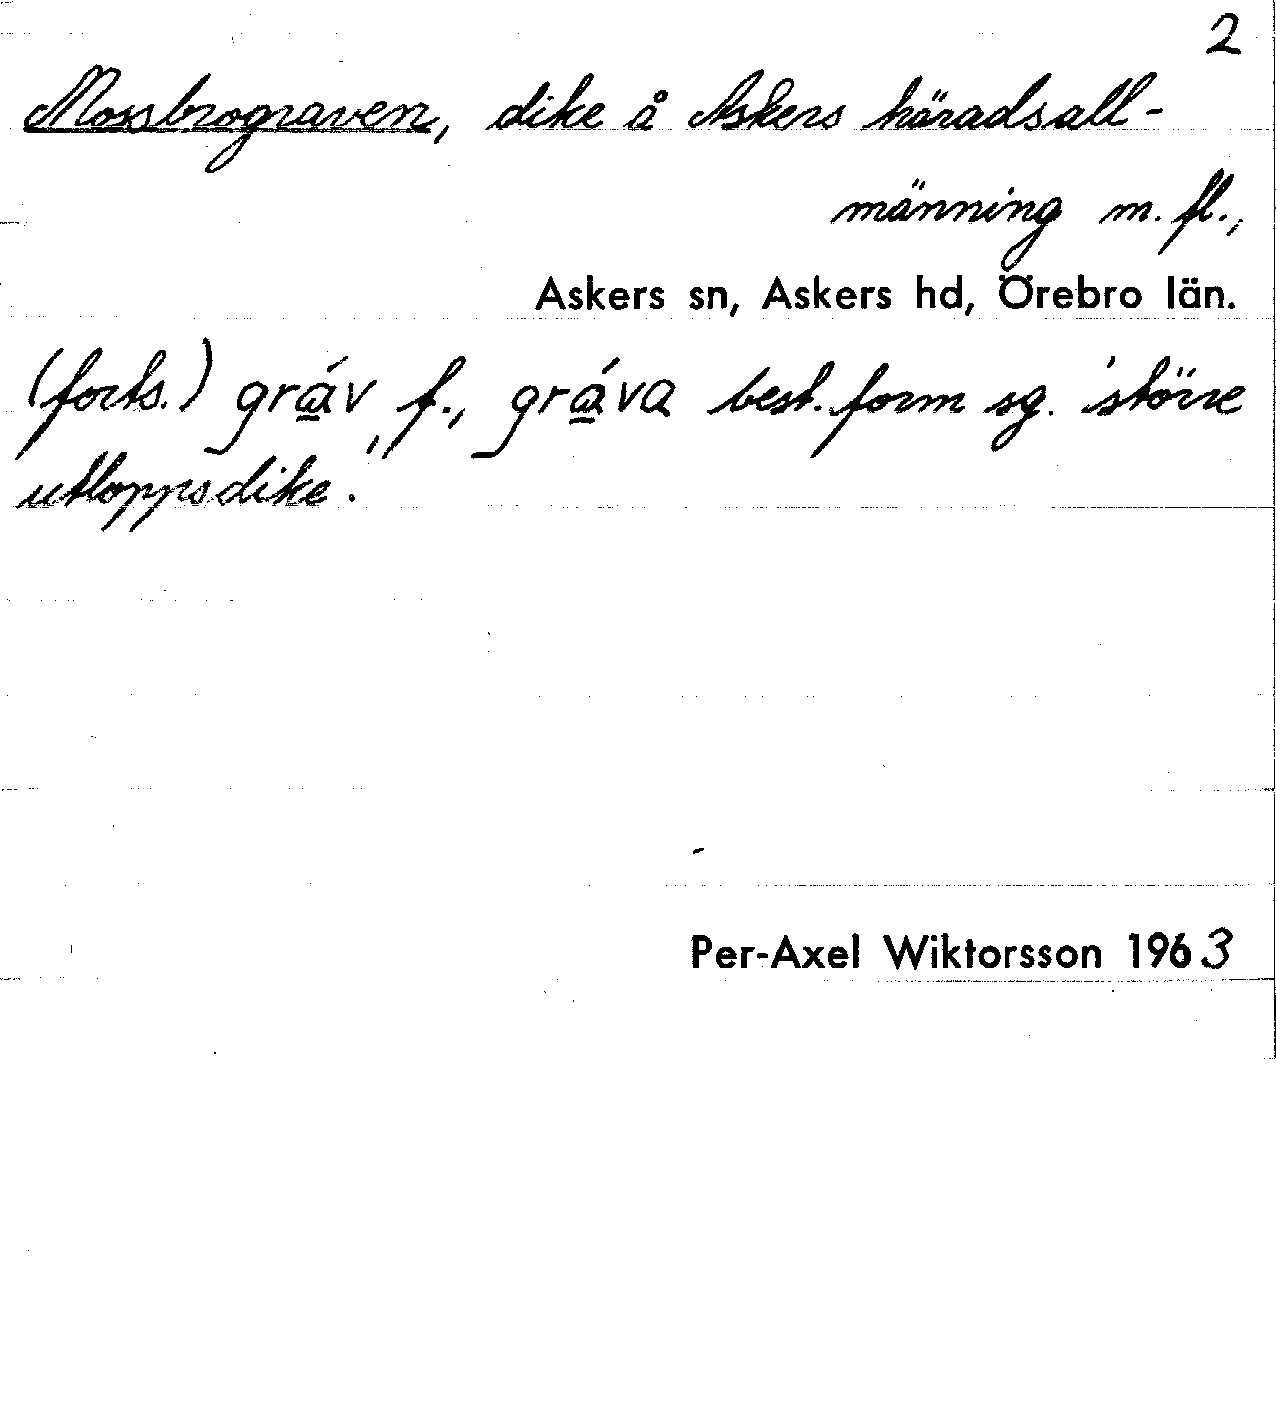 2
Mossbrograven, dike å Askers häradsall-
männing m. fl.,
Askers sn, Askers hd, Örebro län.
(forts.) grá̲v, f., grá̲va best. form sg. 'större
utloppsdike'.
Per-Axel Wiktorsson 1963